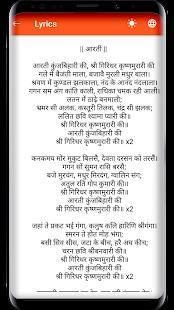 Lyrics
|| आरती ||
आरती कुंजबिहारी की, श्री गिरिधर कृष्णमुरारी की
गले में बैजंती माला, बजावै मुरली मधुर बाला।
श्रवन में कुण्डल झलकाला, नंद के आनंद नंदलाला।
गगन सम अंग कांति काली, राधिका चमक रही आली
लतन में ठाढ़े बनमाली;
भ्रमर सी अलक, कस्तूरी तिलक, चंद्र सी झलक;
ललित छवि श्यामा प्यारी की।
श्री गिरिधर कृष्णमुरारी की।
आरती कुंजबिहारी की
श्री गिरिधर कृष्णमुरारी की॥ x2
कनकमय मोर मुकुट बिलसें, देवता दरसन को तरसैं।
गगन सों सुमन रासि बरसै;
बजे मुरचंग, मधुर मिरदंग, ग्वालिन संग;
अतुल रति गोप कुमारी की॥
श्री गिरिधर कृष्णमुरारी की॥
आरती कुंजबिहारी की
श्री गिरिधर कृष्णमुरारी की॥ x2
जहां ते प्रकट भई गंगा, कलुष कलि हारिणि श्रीगंगा।
स्मरन ते होत मोह भंगा;
बसी सिव सीस, जटा के बीच, हरै अघ कीच;
चरन छवि श्रीबनवारी की॥
श्री गिरिधर कृष्णमुरारी की॥
आरती कुंजबिहारी की
श्री गिरिधर कृष्णमुरारी की॥ x2